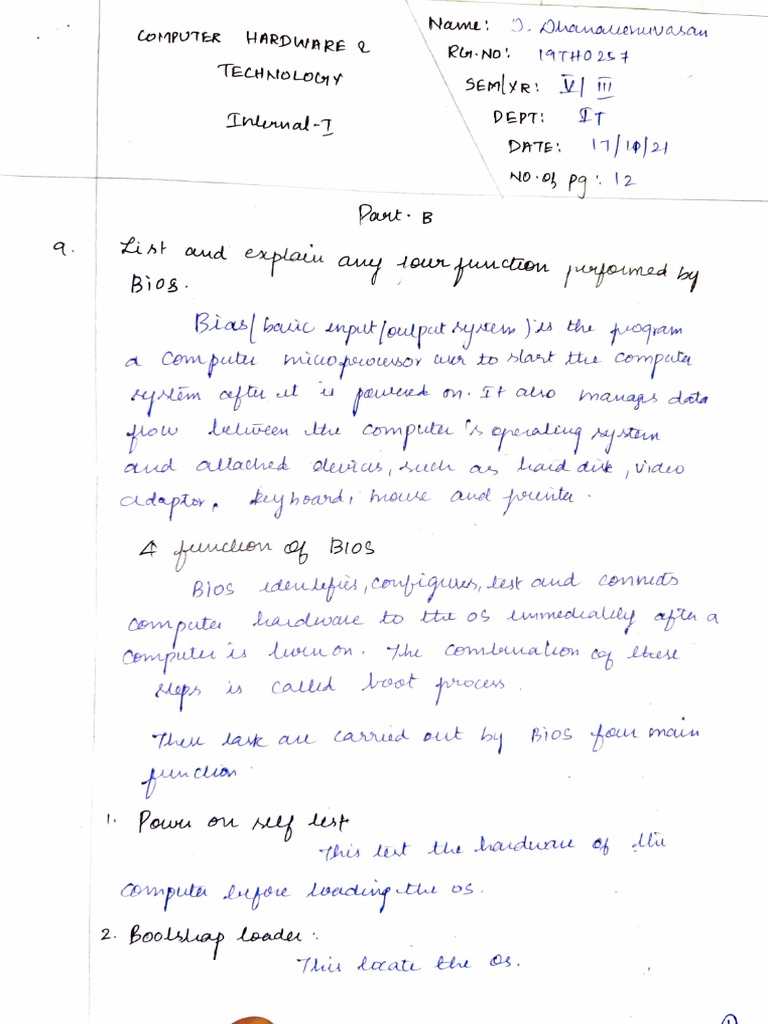 COMPUTER HARDWARE &
TECHNOLOGY
Internal-I
Name: J.
RG.NO: 19TH0257
SEM/YR: V/ III
DEPT: IT
DATE: 17/10/21
NO.of pg: 12
Part. B
9. List and explain any four function performed by
Bios.
Bias(basic input/output system) is the program
a computer microprocessor use to start the computer
system after it is powered on. It also manages data
flow between the computer's operating system
and attached devices, such as hard disk, video
adaptor, keyboard, mouse and printer.
4 function of BIOS
Bios identifies, configures, test and connects
computer hardware to the os immediately after a
computer is turn on. The combination of these
steps is called boot process.
These task are carried out by Bios four main
function
1. Power on self test
This test the hardware of the
computer before loading the os.
2. Bootstrap loader:
This locate the os.